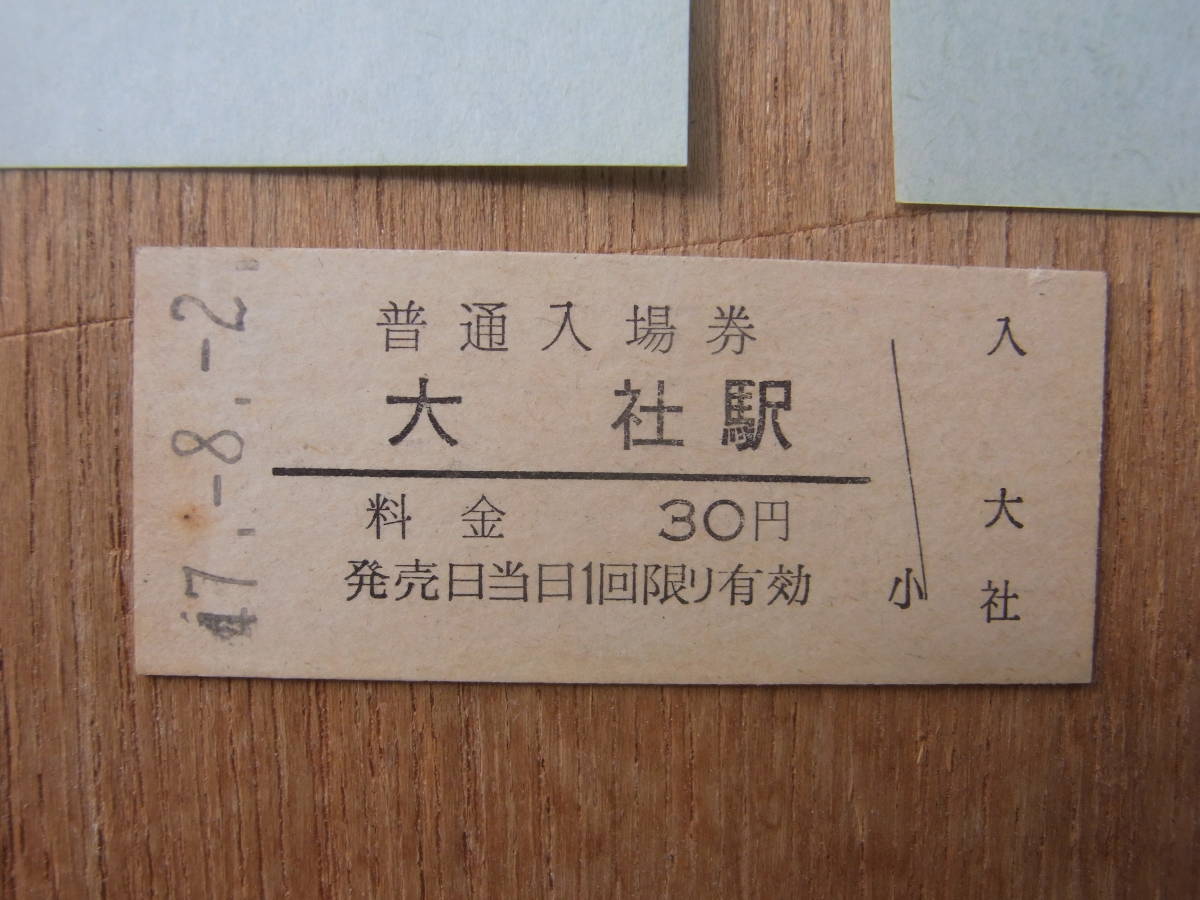 47.-8.-2.
普通入場券
大社駅
料金 30円
発売日当日1回限り有効
小
入
大社